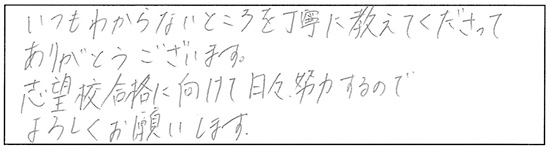 いつもわからないところを丁寧に教えてくださって
ありがとうございます。
志望校合格に向けて日々努力するので
よろしくお願いします.